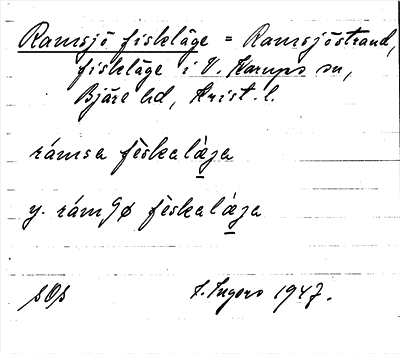 Ramsjö fiskläge = Ramsjöstrand,
fiskläge i V. Karups sn,
Bjäre hd, Krist. l.
rámsa fèskalæ̀ga
y. rám9ø fèskalæ̀ga
SOs 1947.